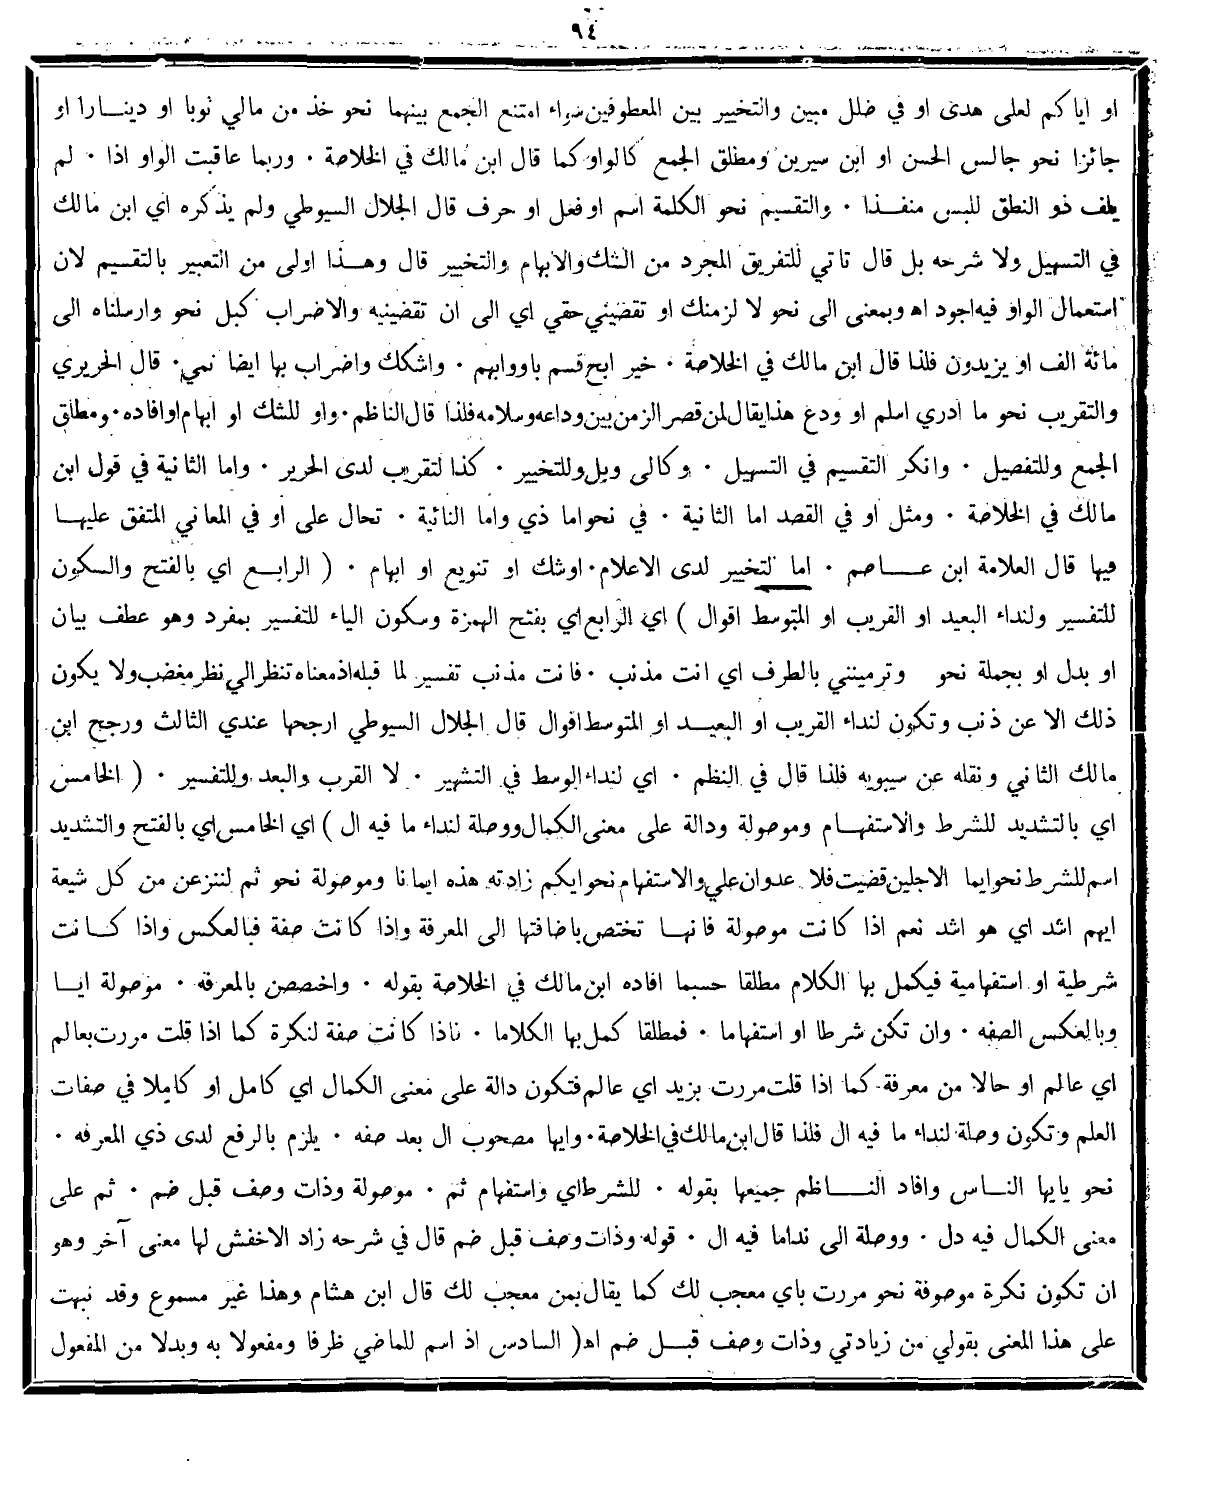 ٩٤
او اياكم لعلى هدى او في ضلل مبين والتخيير بين المعطوفين سواء امتنع الجمع بينهما نحو خذ من مالي ثوبا او دينارا او
جائزا نحو جالس الحسن او ابن سيرين ومطلق الجمع كالواو كما قال ابن مالك في الخلاصة ٠ وربما عاقبت الواو اذا ٠ لم
يلف ذو النطق للبس منفذا ٠ والتقسيم نحو الكلمة اسم او فعل او حرف قال الجلال السيوطي ولم يذكره اي ابن مالك
في التسهيل ولا شرحه بل قال تاتي للتفريق المجرد من الشك والابهام والتخيير قال وهذا اولى من التعبير بالتقسيم لان
استعمال الواو فيه اجود اه وبمعنى الى نحو لا لزمنك او تقضيني حقي اي الى ان تقضينيه والاضراب كبل نحو وارسلناه الى
مائة الف او يزيدون فلذا قال ابن مالك في الخلاصة ٠ خير ابح قسم باو وابهم ٠ واشكك واضراب بها ايضا نمي ٠ قال الحريري
والتقريب نحو ما ادري اسلم او ودع هذا يقال لمن قصر الزمن بين وداعه وسلامه فلذا قال الناظم ٠ واو للشك او ابهام او افاده ٠ ومطلق
الجمع وللتفصيل ٠ وانكر التقسيم في التسهيل ٠ وكالى وبل وللتخيير ٠ كذا لتقريب لدى الحرير ٠ واما الثانية في قول ابن
مالك في الخلاصة ٠ ومثل او في القصد اما الثانية ٠ في نحو اما ذي واما النائية ٠ تحال على او في المعاني المتفق عليها
فيها قال العلامة ابن عاصم ٠ اما لتخيير لدى الاعلام ٠ او شك او تنويع او ابهام ٠ ( الرابع اي بالفتح والسكون
للتفسير ولنداء البعيد او القريب او المتوسط اقوال ) اي الرابع اي بفتح الهمزة وسكون الياء للتفسير بمفرد وهو عطف بيان
او بدل او بجملة نحو وترمينني بالطرف اي انت مذنب ٠ فانت مذنب تفسير لما قبله اذ معناه تنظر الي نظر مغضب ولا يكون
ذلك الا عن ذنب وتكون لنداء القريب او البعيد او المتوسط اقوال قال الجلال السيوطي ارجحها عندي الثالث ورجح ابن
مالك الثاني ونقله عن سيبويه فلذا قال في النظم ٠ اي لنداء الوسط في التشهير ٠ لا القرب والبعد وللتفسير ٠ ( الخامس
اي بالتشديد للشرط والاستفهام وموصولة ودالة على معنى الكمال ووصلة لنداء ما فيه ال ) اي الخامس اي بالفتح والتشديد
اسم للشرط نحو ايما الاجلين قضيت فلا عدوان علي والاستفهام نحو ايكم زادته هذه ايمانا وموصولة نحو ثم لننزعن من كل شيعة
ايهم اشد اي هو اشد نعم اذا كانت موصولة فانها تختص باضافتها الى المعرفة واذا كانت صفة فبالعكس واذا كانت
شرطية او استفهامية فيكمل بها الكلام مطلقا حسبما افاده ابن مالك في الخلاصة بقوله ٠ واخصصن بالمعرفه ٠ موصولة ايا
وبالعكس الصفه ٠ وان تكن شرطا او استفهاما ٠ فمطلقا كمل بها الكلاما ٠ فاذا كانت صفة لنكرة كما اذا قلت مررت بعالم
اي عالم او حالا من معرفة كما اذا قلت مررت بزيد اي عالم فتكون دالة على معنى الكمال اي كامل او كاملا في صفات
العلم وتكون وصلة لنداء ما فيه ال فلذا قال ابن مالك في الخلاصة ٠ وايها مصحوب ال بعد صفه ٠ يلزم بالرفع لدى ذي المعرفه ٠
نحو يايها الناس وافاد الناظم جميعها بقوله ٠ للشرط اي واستفهام ثم ٠ موصولة وذات وصف قبل ضم ٠ ثم على
معنى الكمال فيه دل ٠ ووصلة الى ندا ما فيه ال ٠ قوله وذات وصف قبل ضم قال في شرحه زاد الاخفش لها معنى آخر وهو
ان تكون نكرة موصوفة نحو مررت باي معجب لك كما يقال بمن معجب لك قال ابن هشام وهذا غير مسموع وقد نبهت
على هذا المعنى بقولي من زيادتي وذات وصف قبل ضم اه ( السادس اذ اسم للماضي ظرفا ومفعولا به وبدلا من المفعول